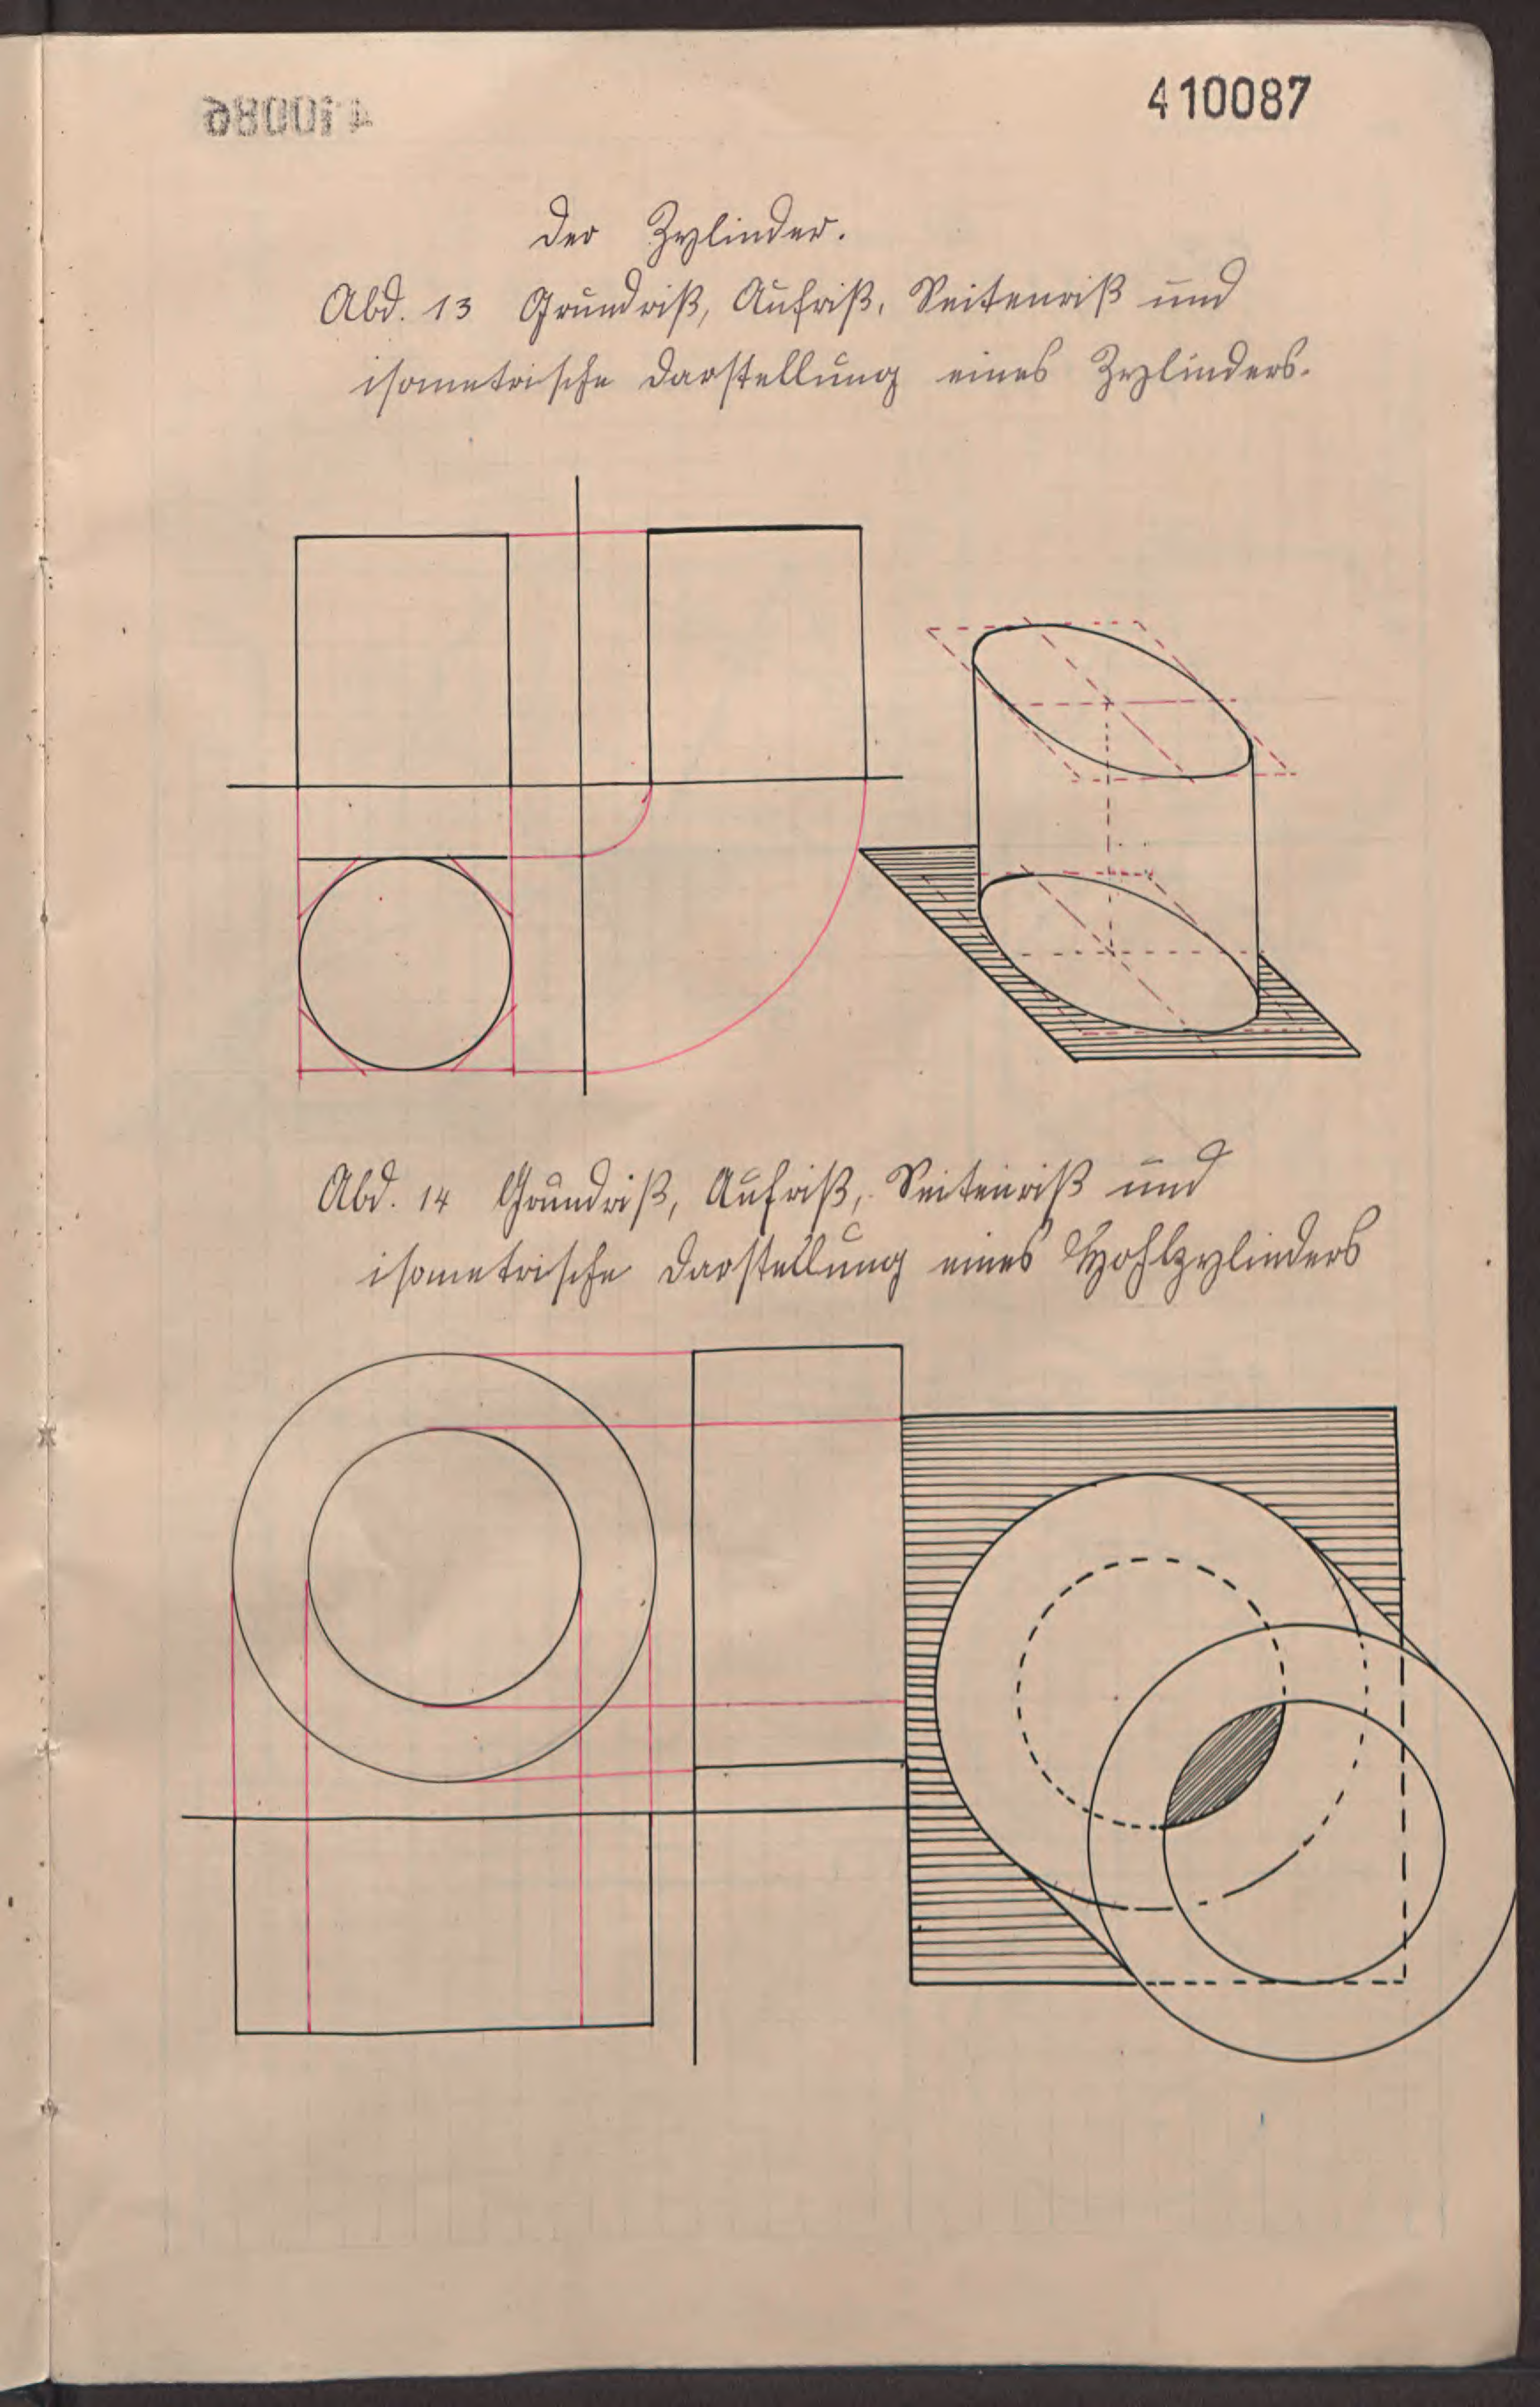 410086
410087
Der Zylinder.
Abb. 13 Grundriß, Aufriß, Seitenriß und
isometrische Darstellung eines Zylinders.
Abb. 14 Grundriß, Aufriß, Seitenriß und
isometrische Darstellung eines Hohlzylinders